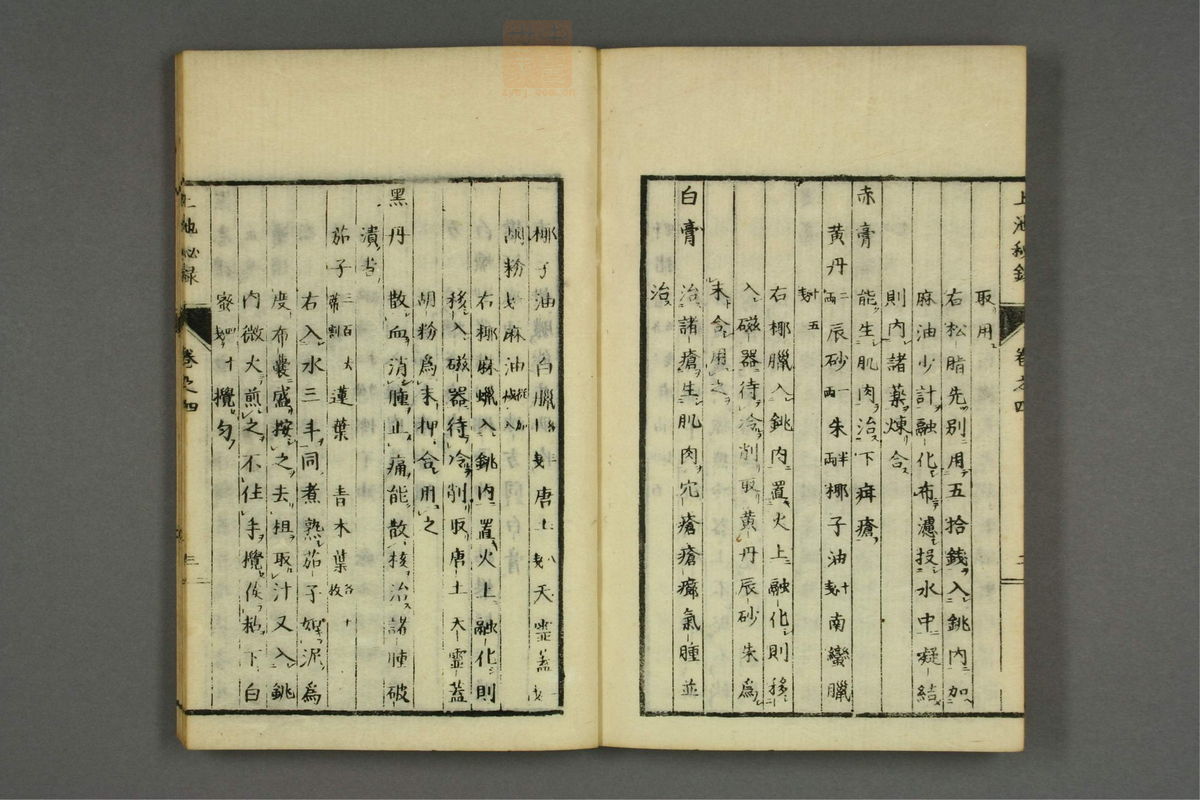 上池秘録 卷之四
取用
右松脂先別用五拾錢入銚內加
麻油少計融化布濾投水中凝結
則內諸藥煉合
赤膏 能生肌肉治下疳瘡
黄丹二兩 辰砂一兩 朱半兩 椰子油十戔 南蠻臘
十五戔
右椰臘入銚內置火上融化則移
入磁器待冷削取黄丹辰砂朱為
末合用之
白膏 治諸瘡生肌肉宂瘡瘡癤氣腫並
治
椰子油 白臘各戔 唐土八戔 天靈蓋戔
胡粉戔 麻油
右椰麻蠟入銚內置火上融化則
移入磁器待冷削取唐土天靈蓋
胡粉為末押合用之
黑丹 散血消腫止痛能散核治諸腫破
潰者
茄子三百去蔕 蓮葉 青木葉各十枚
右入水三斗同煮熟茄子如泥為
度布囊盛按之去柤取汁又入銚
內微火煎之不住手攪候粘下白
蜜四十戔攪勻
上池秘録 卷之四 三